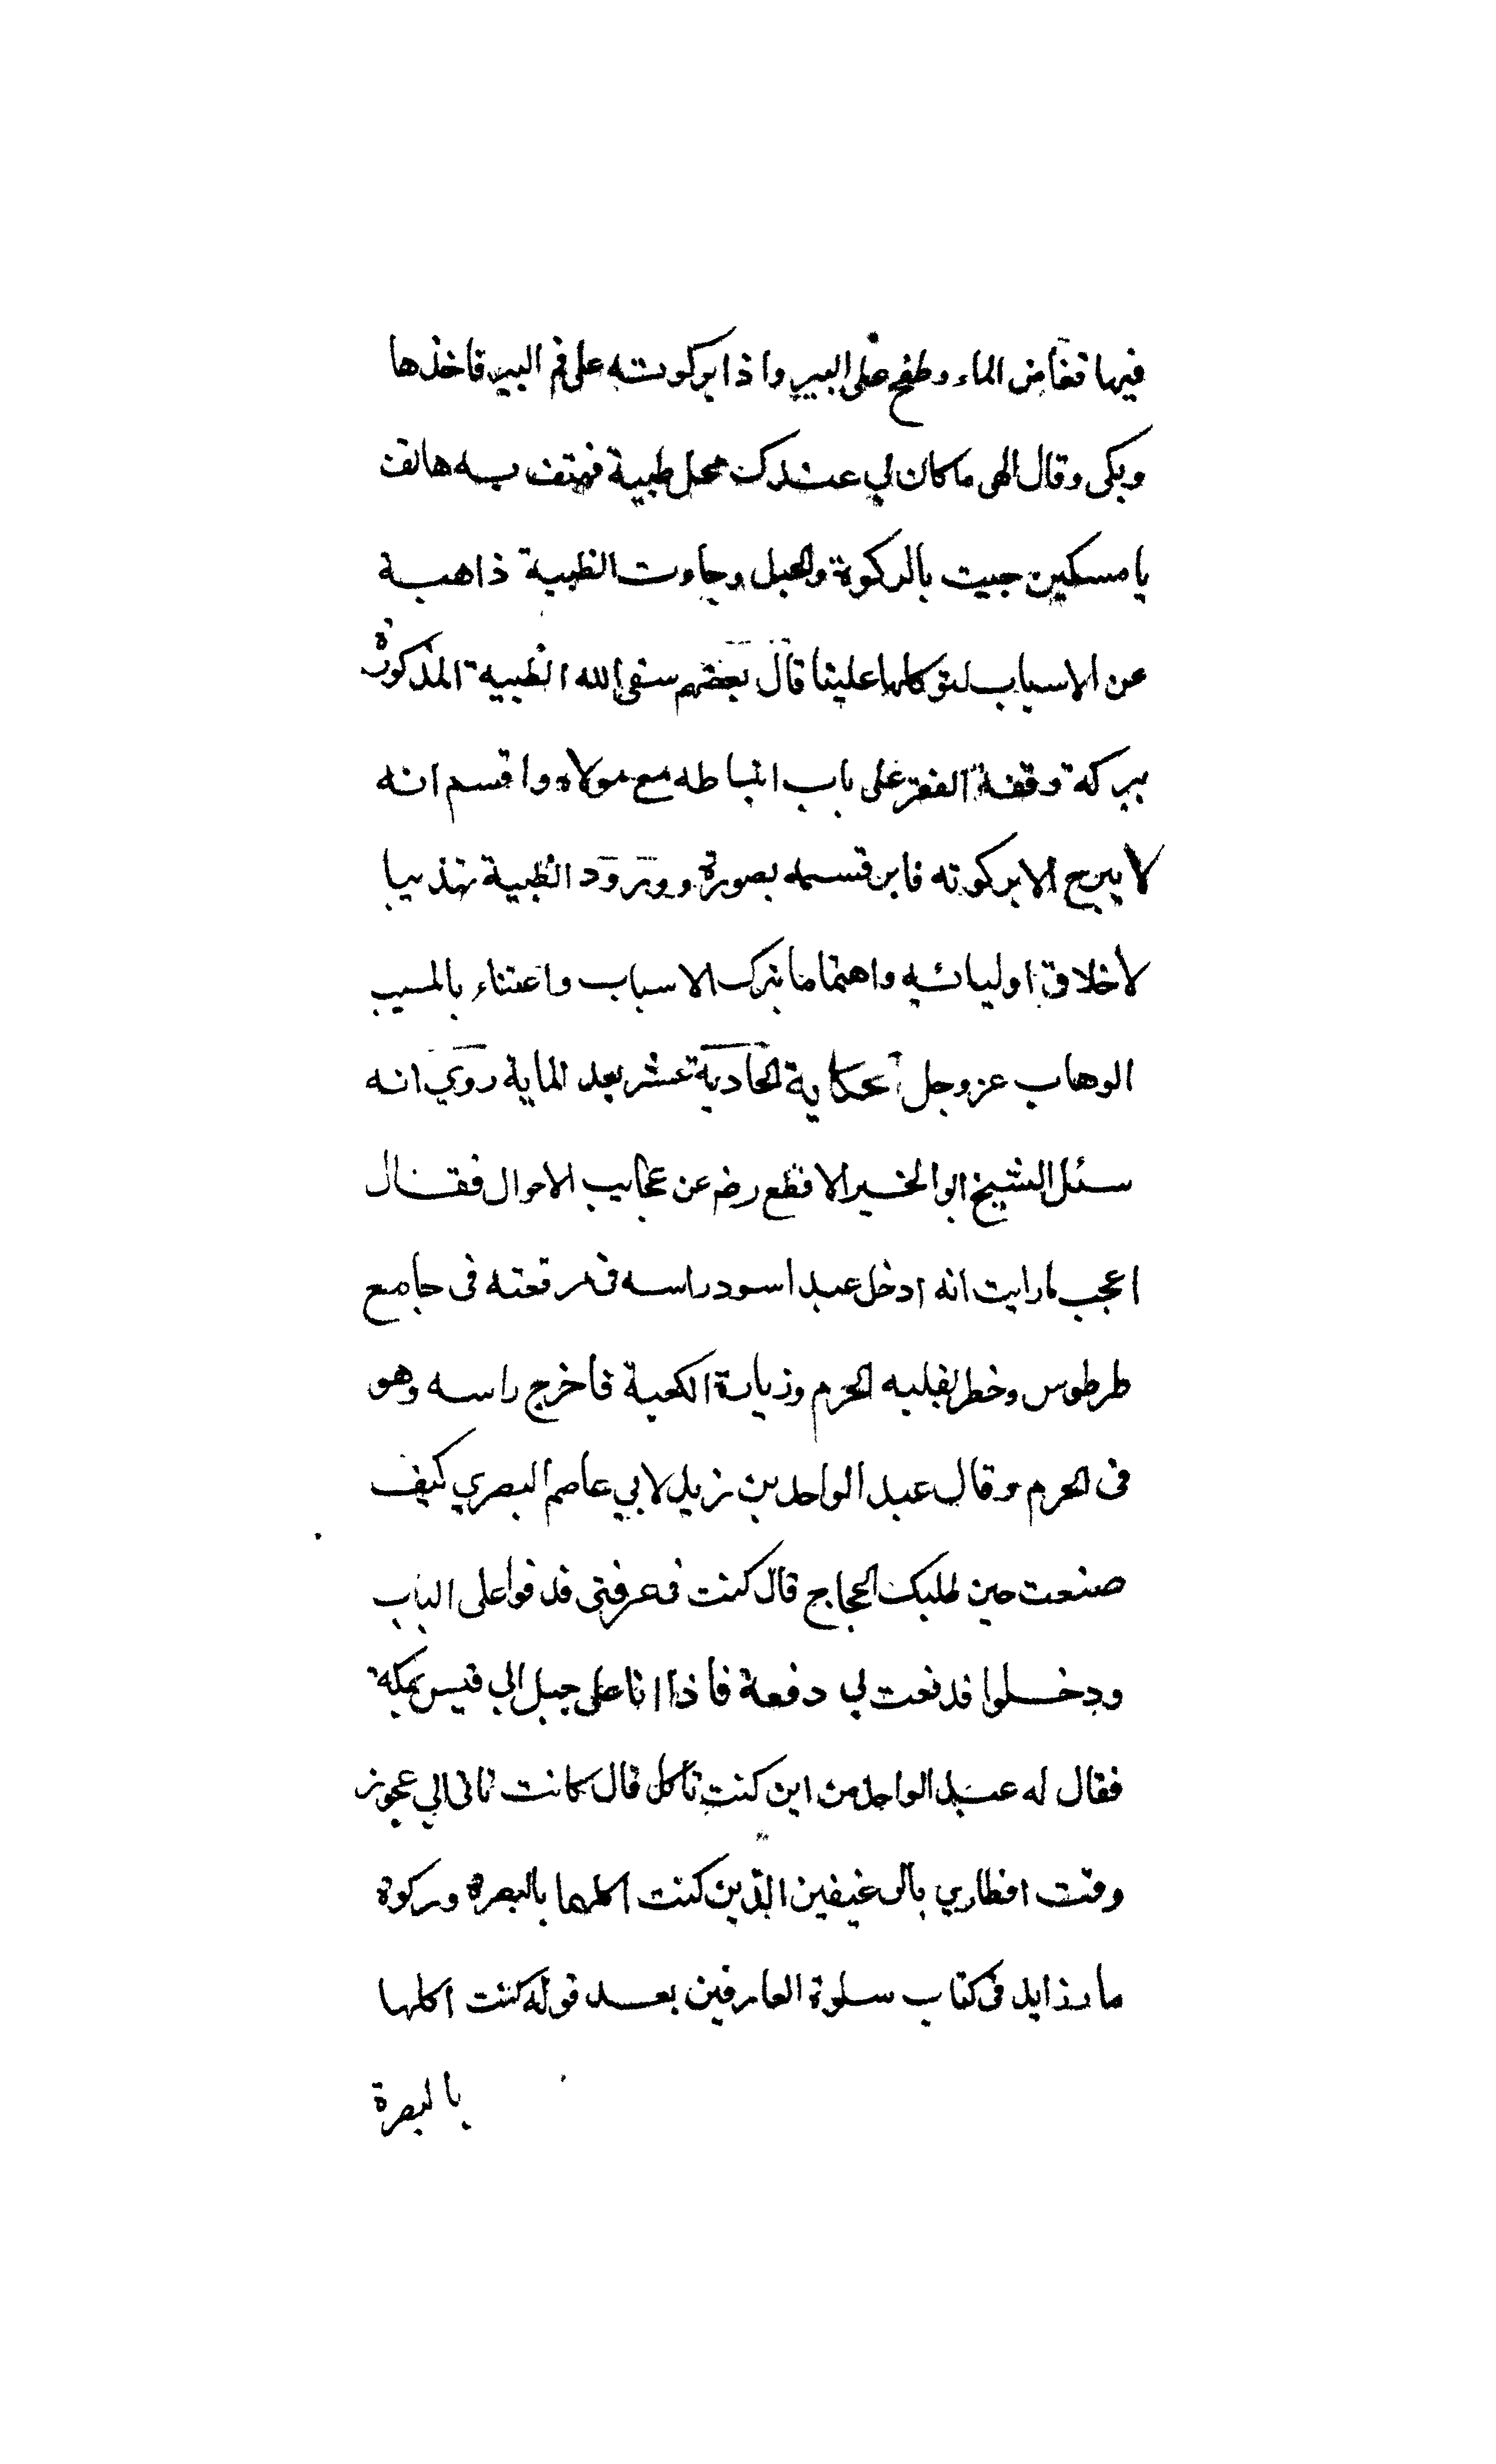 فيها ففاض الماء وطفح على البير واذا بركوته على فم البير فاخذها
وبكى وقال الهي ما كان لي عندك محل ظبية فهتف به هاتف
يا مسكين جيت بالركوة والحبل وجاوت الظبية ذاهبة
عن الاسباب لتوكلها علينا قال بعضهم سقى الله الظبية المذكورة
ببركة وقفة الفقر على باب انبساطه مع مولاه واقسم انه
لا يبرح الا بركوته فابر قسمه بصورة وورود الظبية تهذيبا
لاخلاق اوليائه واهتماما بترك الاسباب واعتناء بالمسبب
الوهاب عز وجل الحكاية الحادية عشر بعد الماية روي انه
سئل الشيخ ابو الخير الاقطع رضه عن عجايب الاحوال فقال
اعجب ما رايت انه ادخل عبد اسود راسه في مرقعته في جامع
طرطوس وخطر بقلبه الحرم وزيارة الكعبة فاخرج راسه وهو
في الحرم وقال عبد الواحد بن زيد لابي عاصم البصري كيف
صنعت حين طلبك الحجاج قال كنت في غرفتي فدقوا على الباب
ودخلوا فدفعت لي دفعة فاذا انا على جبل ابي قبيس بمكة
فقال له عبد الواحد من اين كنت تاكل قال كانت تاتي الي عجوز
وقت افطاري بالرغيفين الذين كنت اكلهما بالبصرة وركوة
ما زايد في كتاب سلوة العارفين بعد قوله كنت اكلها
بالبصرة